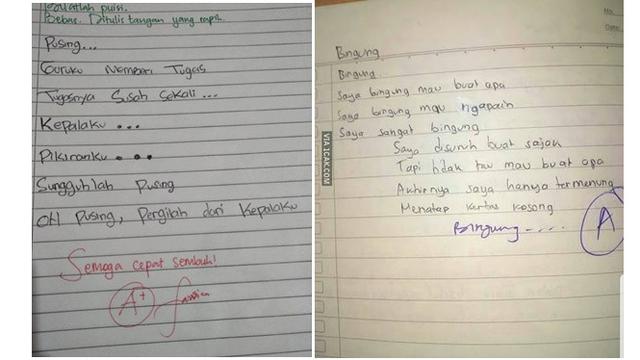 puisi.
Bebas. Ditulis tangan yang rapi.
Pusing...
Guruku Memberi Tugas
Tugasnya Susah Sekali ...
Kepalaku ...
Pikiranku...
Sungguhlah Pusing
Oh Pusing, Pergilah dari Kepalaku
Semoga cepat sembuh!
A+
Bingung
Bingung
Saya bingung mau buat apa
Saya bingung mau ngapain
Saya sangat bingung
Saya disuruh buat sajak
Tapi tidak tau mau buat apa
Akhirnya saya hanya termenung
Menatap kertas kosong
Bingung.....
A
VIA 1CAK.COM
No.
Date